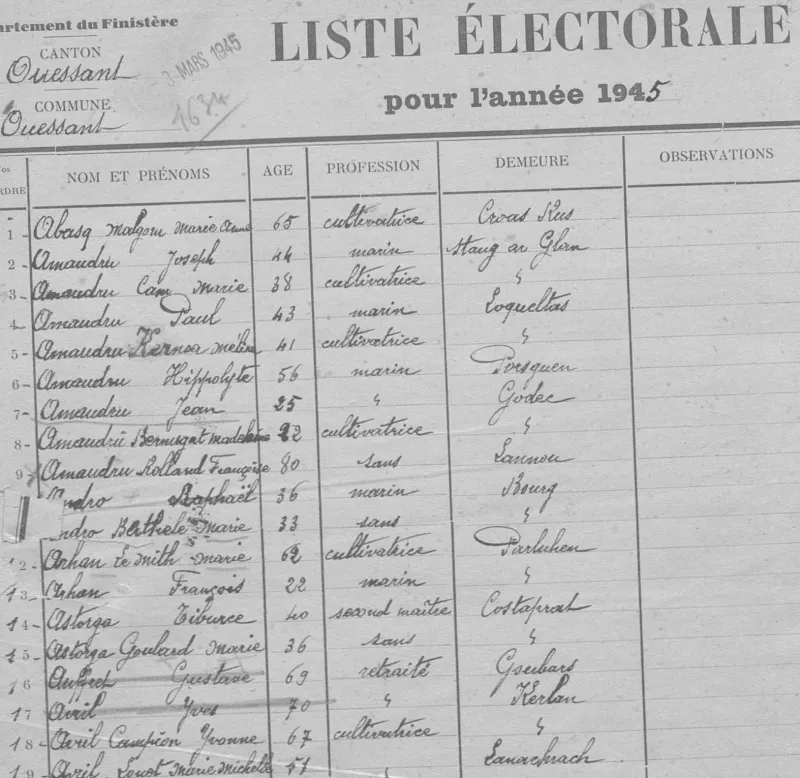 artement du Finistère
CANTON
Ouessant
COMMUNE
Ouessant
3 MARS 1945
1634
LISTE ÉLECTORALE
pour l'année 1945
os RDRE NOM ET PRÉNOMS AGE PROFESSION DEMEURE OBSERVATIONS
1 - Abasq Malgorn Marie Anne 65 cultivatrice Croas Kus
2 - Amaudru Joseph 44 marin Stang ar Glan
3 - Amaudru Cam Marie 38 cultivatrice "
4 - Amaudru Paul 43 marin Loqueltas
5 - Amaudru Kernoa Mélina 41 cultivatrice "
6 - Amaudru Hippolyte 56 marin Porsguen
7 - Amaudru Jean 25 " Godec
8 - Amaudru Bernugat Madeleine 22 cultivatrice "
9 Amaudru Rolland Françoise 80 sans Lannou
ndro Raphaël 36 marin Bourg
ndro Berthele Marie 33 sans "
12 - Arhan Le Mith Marie 62 cultivatrice Parluhen
13 - Arhan François 22 marin "
14 - Astorga Tiburce 40 second maître Costaprat
15 - Astorga Goulard Marie 36 sans "
16 Gustave 69 retraité Gsubars
17 Avril Yves 70 " Kerlan
18 - Avril Campion Yvonne 67 cultivatrice "
19 - Avril Marie Michelle 51 " Lanachrach